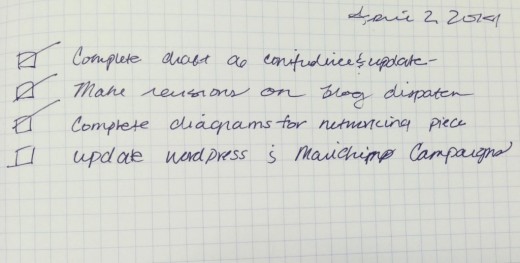 April 2, 2014
Complete draft of conference update -
Make revisions on blog dispatch
Complete diagrams for networking piece
update wordpress & Mailchimp Campaigns